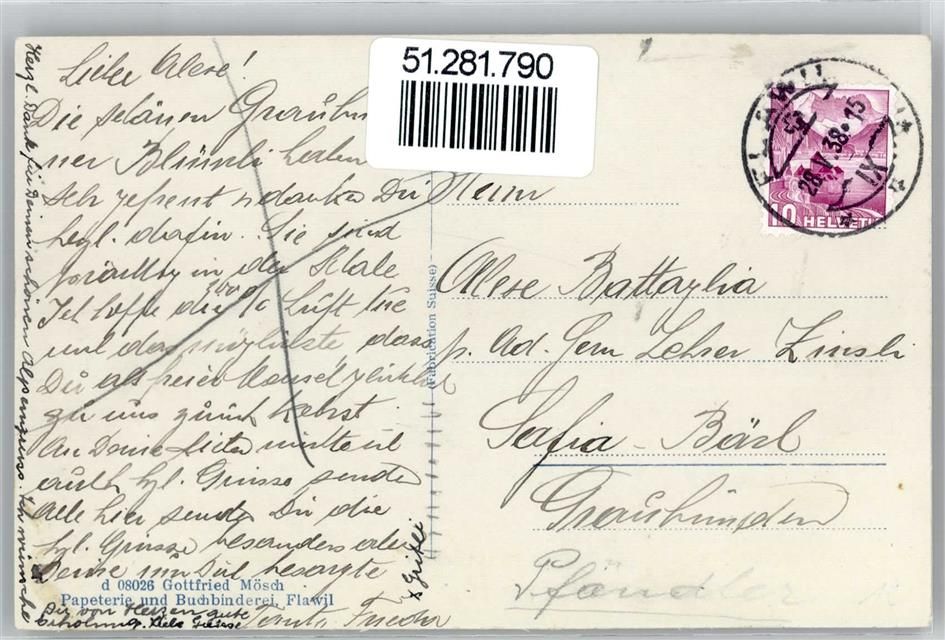 51.281.790
Liebe Alese!
Die schönen Graubü
ner Blümli haben
sehr gefreut u danke Dir
hezl. dafür. Sie sind
prächtig in der Schale
Ich hoffe die Luft tue
und das möglichste dass
Du als freier Mensch
zu uns zurück kehrst.
An Deine Lieben möchte ich
auch hzl. Grüsse senden
Alle hier senden Dir die
hzl. Grüsse besonders aber
Deine um Dich besorgte
Tante Frieda
Herzl. Dank für Deinen schönen Alpengruss. Ich wünsche
Dir von Herzen gute
Erholung. Liebe Grüsse
Gritli
d 08026 Gottfried Mösch
Papeterie und Buchbinderei, Flawil
(Fabrication Suisse)
FLAWIL
28.V.38-15
IX
10 HELVETIA
Alese Battaglia
p. Ad. Gem Lehrer Zinsli
Safia - Bäsl
Graubünden
Pfändler